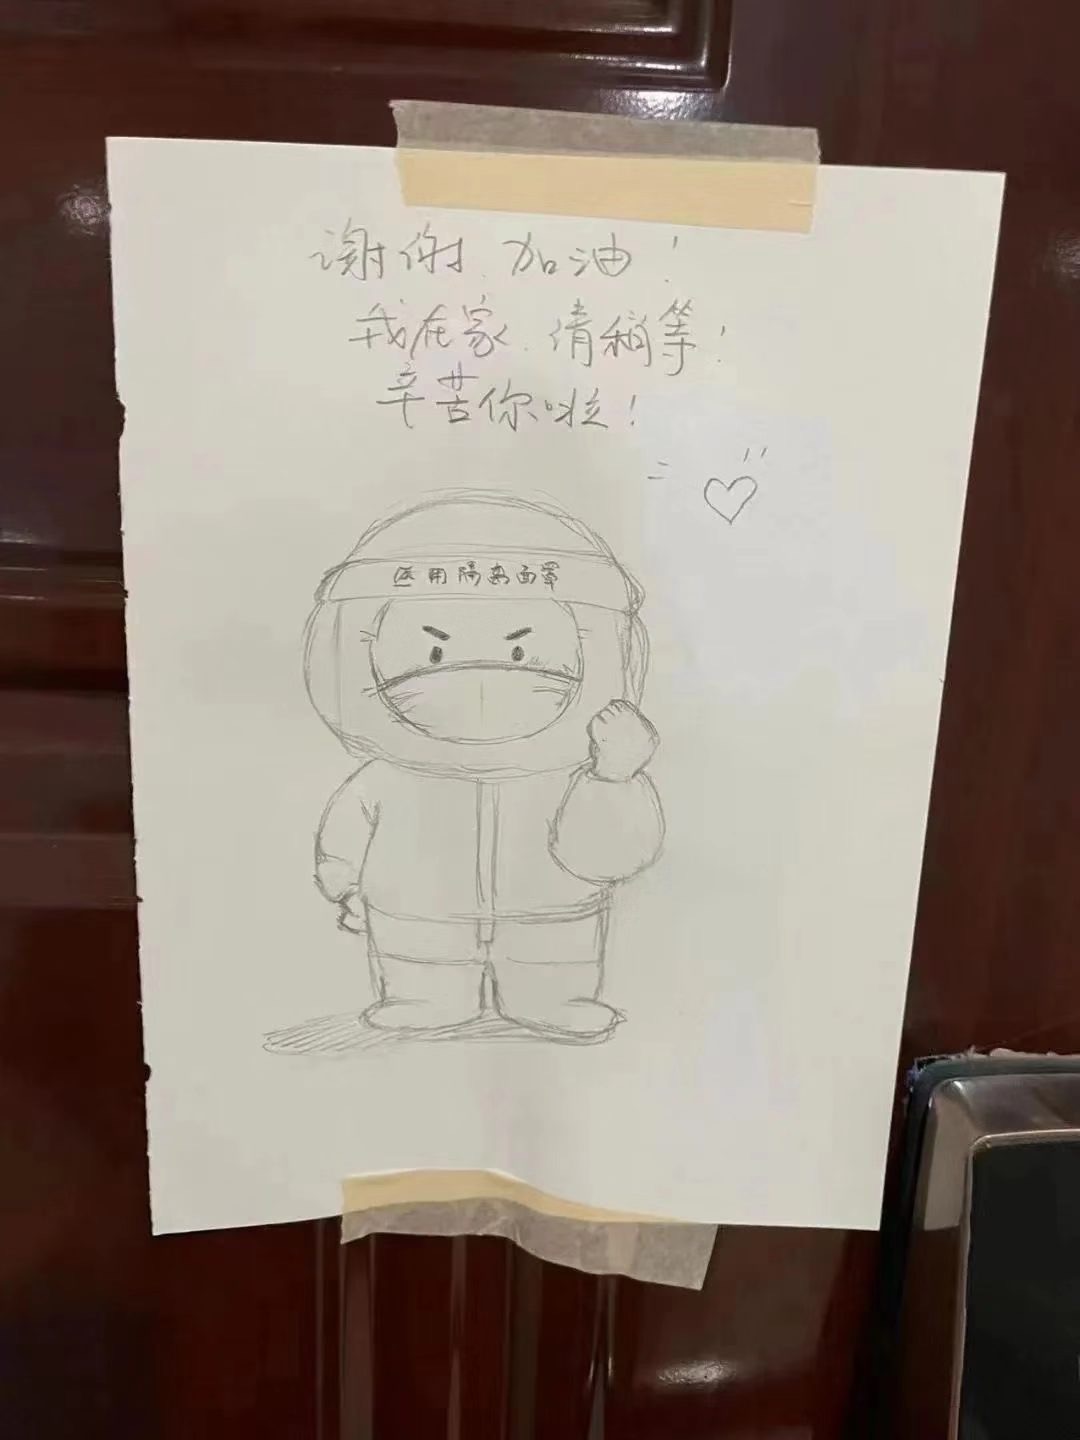 谢谢.加油!
我在家.请稍等!
辛苦你啦!
医用隔离面罩